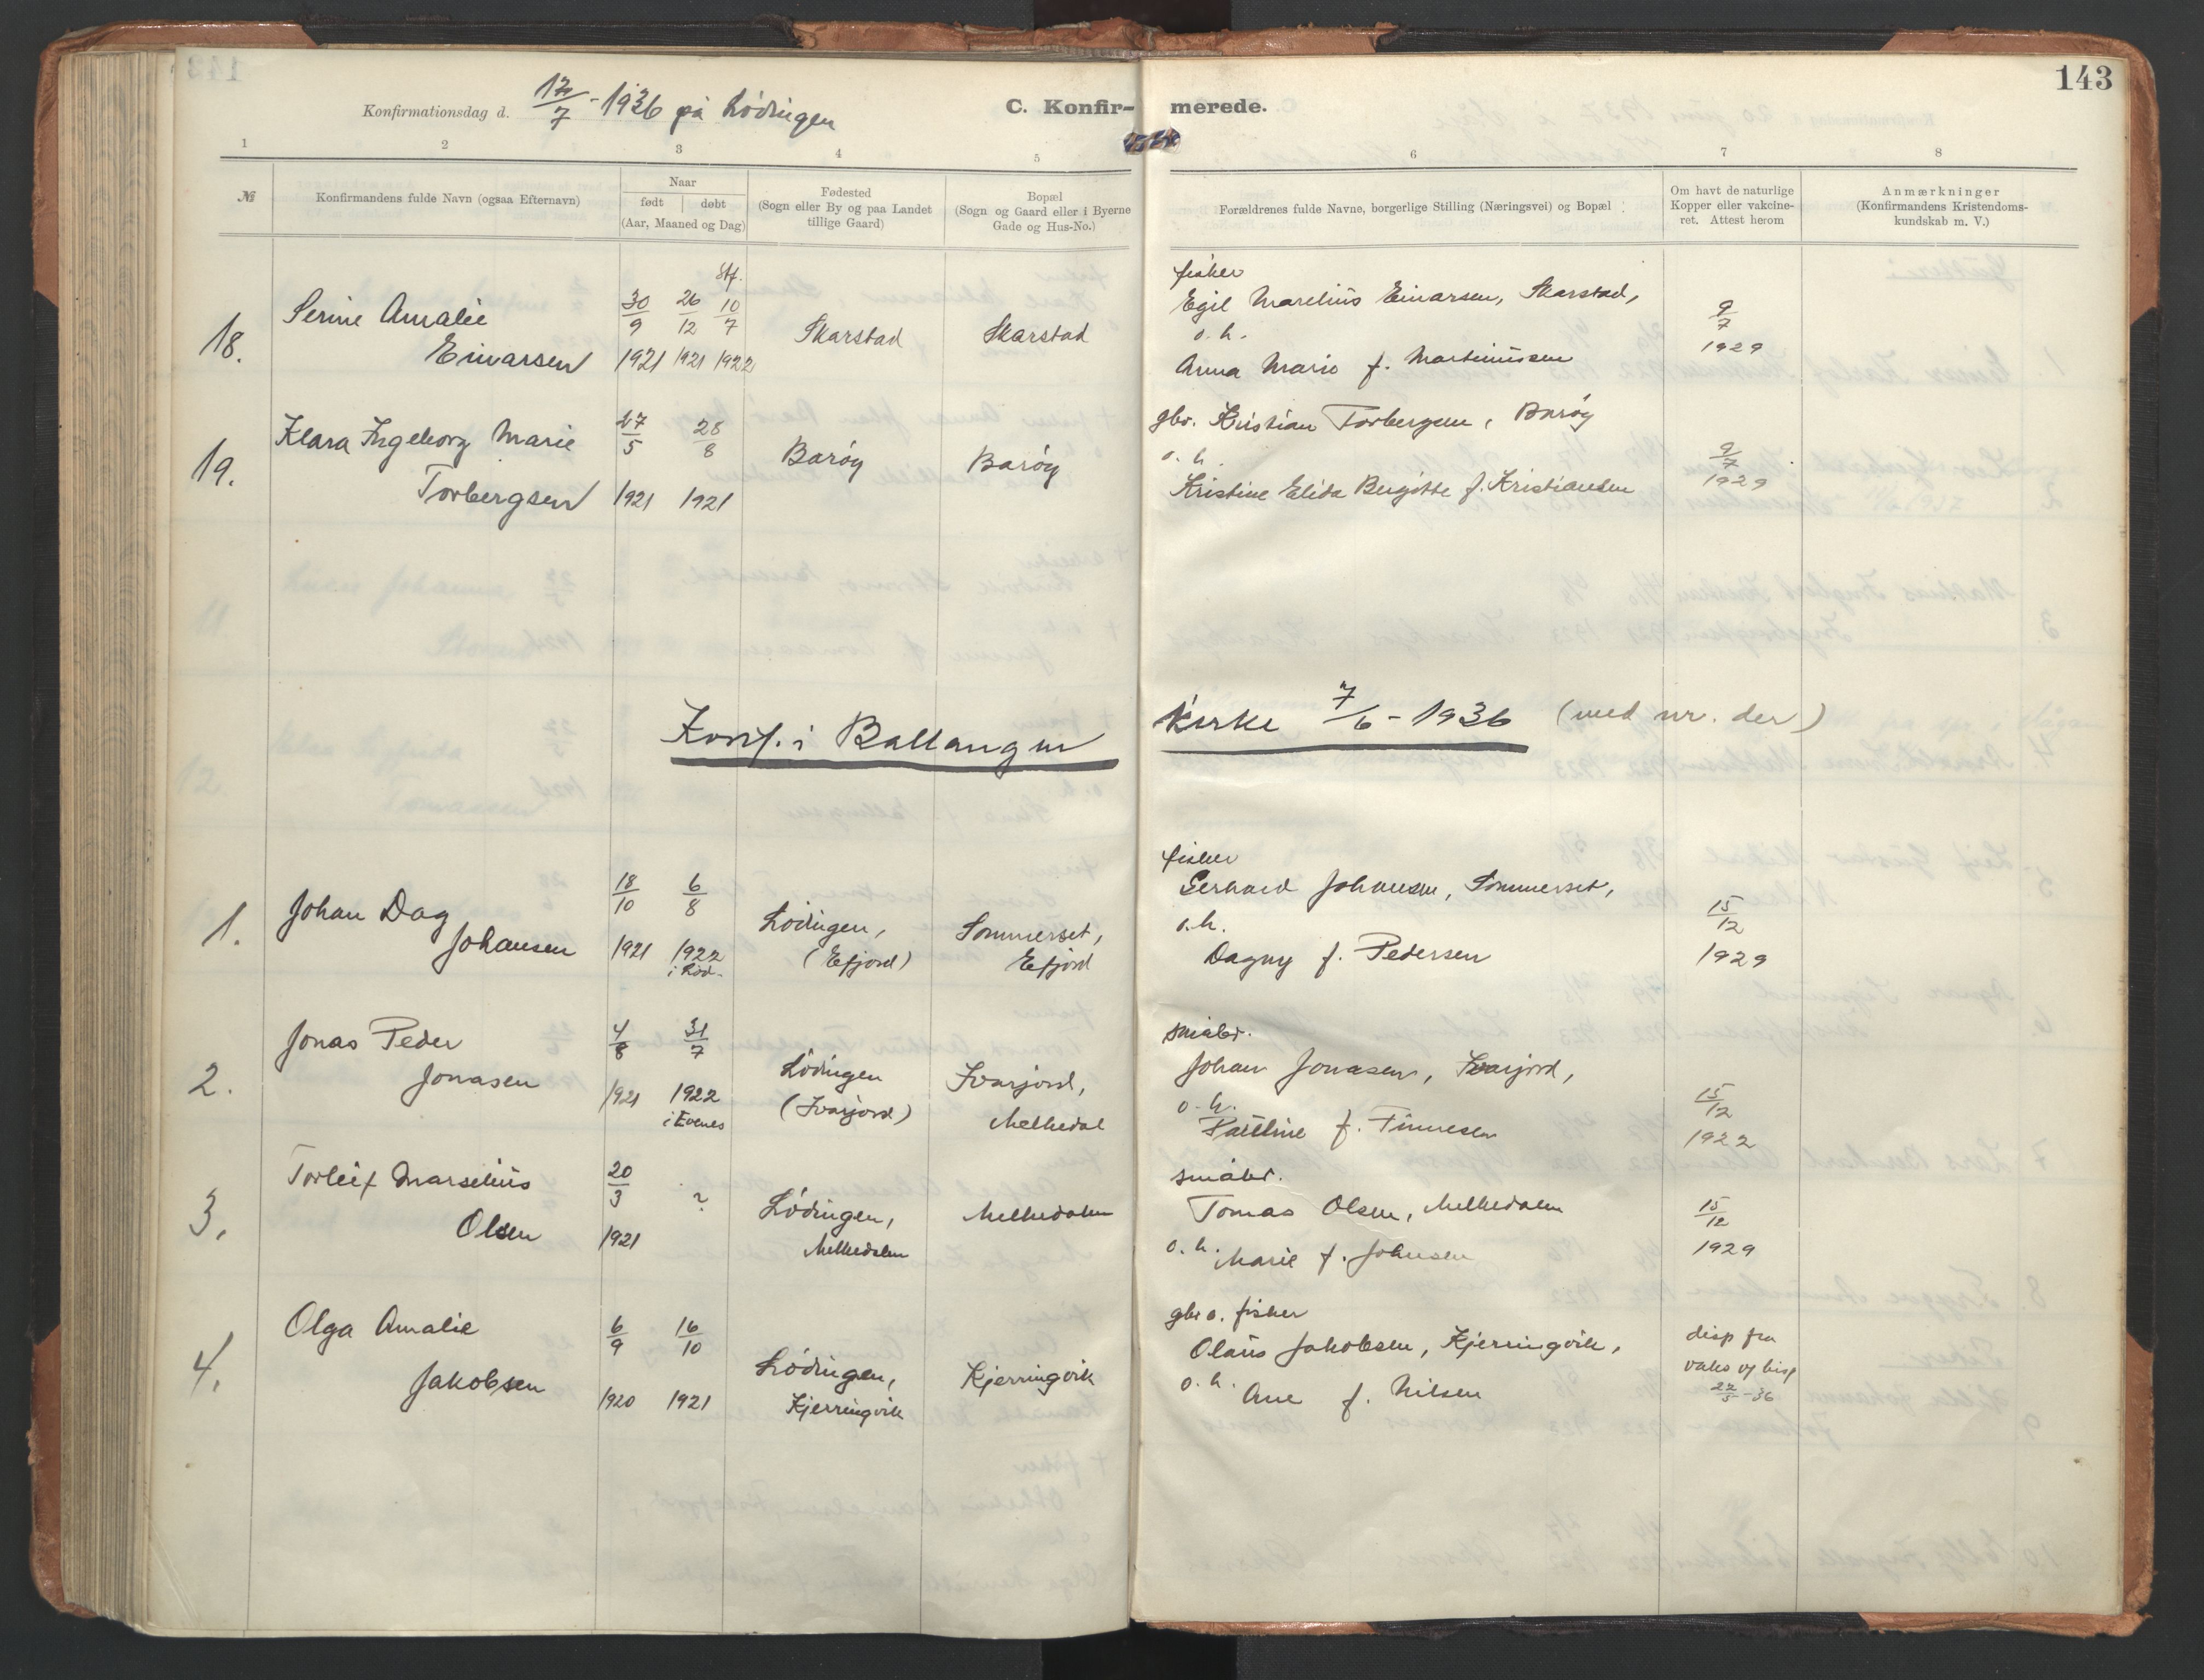 143
Konfirmationsdag d. 12/7 - 1936 på Lödingen
C. Konfir- merede.
1 2 3 4 5 6 7 8
№
Konfirmandens fulde Navn (ogsaa Efternavn)
Naar
født døbt
(Aar, Maaned og Dag)
Fødested
(Sogn eller By og paa Landet
tillige Gaard)
Bopæl
(Sogn og Gaard eller i Byerne
Gade og Hus-No.)
Forældrenes fulde Navne, borgerlige Stilling (Næringsvei) og Bopæl
Om havt de naturlige
Kopper eller vakcine-
ret. Attest herom
Anmærkninger
(Konfirmandens Kristendoms-
kundskab m. V.)
18.
Serine Amalie
Einarsen
30/9 26/12 10/7
1921 1921 1922
Skarstad
Skarstad
fisker
Egil Marelius Einarsen, Skarstad,
o. h.
Anna Marie f. Martinussen
9/7
1929
19.
Klara Ingeborg Marie
Torbergsen
27/5 28/8
1921 1921
Barøy
Barøy
gbr. Kristian Torbergsen, Barøy
o. h.
Kristine Elida Bergitte f. Kristiansen
9/7
1929
Konf. i Ballangen kirke 7/6 - 1936 (med nr. der)
1.
Johan Dag
Johansen
18/10 6/8
1921 1922
i Lød.
Lödingen,
(Efjord)
Sommerset,
Efjord
fisker
Gerhard Johansen, Sommerset,
o. h.
Dagny f. Pedersen
15/12
1929
2.
Jonas Peder
Jonasen
4/8 31/7
1921 1922
i Evenes
Lödingen
(Ivarjord)
Ivarjord,
Melkedal
småbr.
Johan Jonasen, Ivarjord,
o. h.
Pauline f. Finnesen
15/12
1922
3.
Torleif Marselius
Olsen
20/3 ?
1921
Lödingen,
Melkedalen
Melkedalen
småbr.
Tomas Olsen, Melkedalen
o. h. Marie f. Johnsen
15/12
1929
4.
Olga Amalie
Jakobsen
6/9 16/10
1920 1921
Lödingen,
Kjerringvik
Kjerringvik
gbr o. fisker
Olaus Jakobsen, Kjerringvik,
o. h. Ane f. Nilsen
disp fra
vaks v/ bisp
27/5 - 36